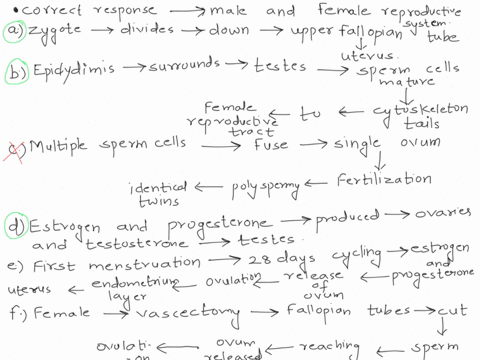 • correct response → male and female reproductive system
a) zygote → divides → down → upper fallopian tube
↓
uterus.
b) Epidydimis → surrounds → testes → sperm cells mature
↓
Female reproductive tract ← to ← cytoskeleton tails
c) Multiple sperm cells → Fuse → single ovum
↓
identical twins ← polyspermy ← Fertilization
d) Estrogen and progesterone → produced → ovaries
and testosterone → testes.
e) First menstruation → 28 days cycling → estrogen and progesterone
uterus ← endometrium layer ← ovulation ← release of ovum ←
f.) Female → vascectomy → Fallopian tubes → cut
↓
ovulati-on ← ovum released ← reaching ← sperm